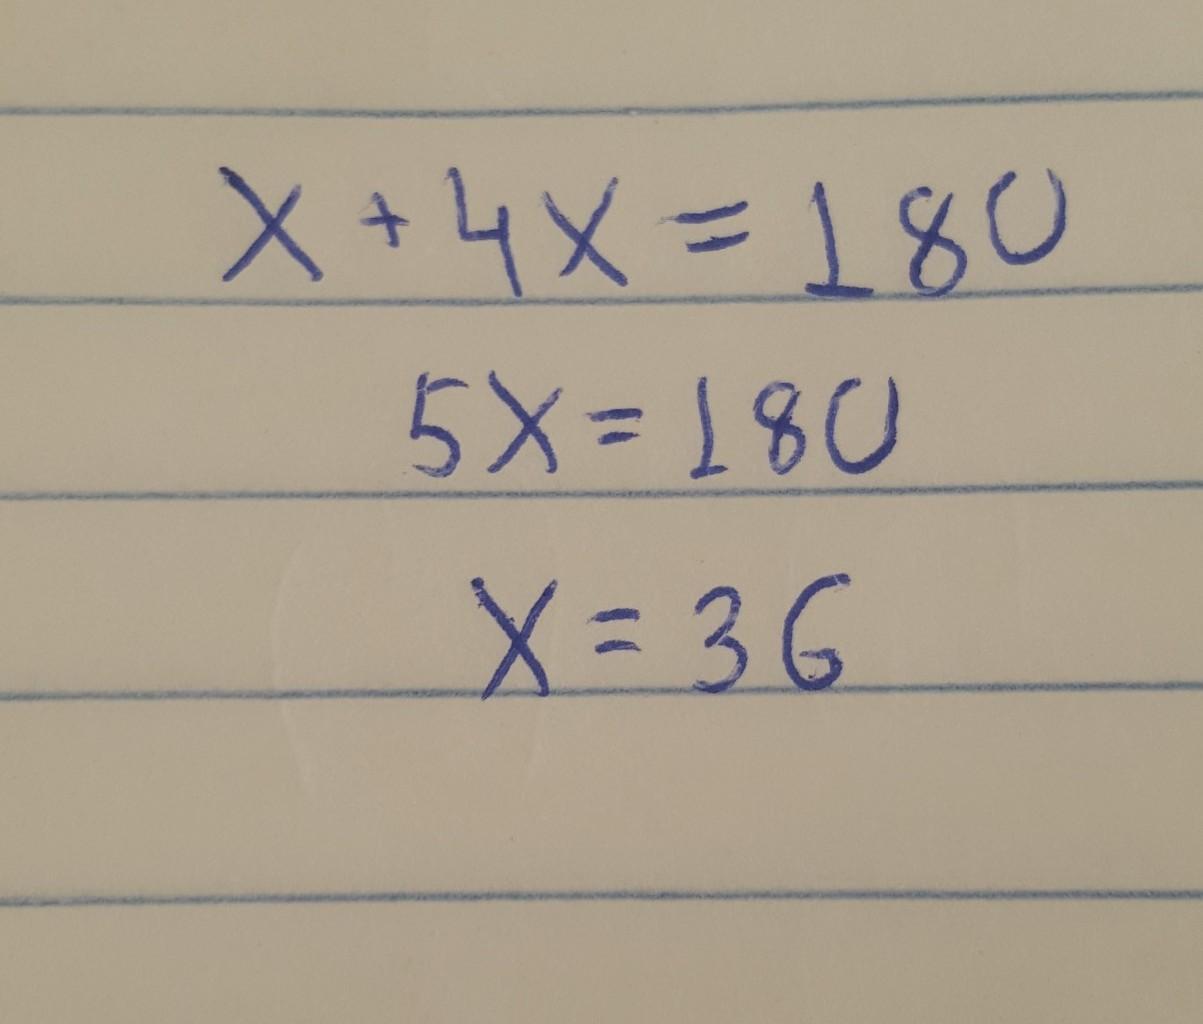 X + 4X = 180
5X = 180
X = 36